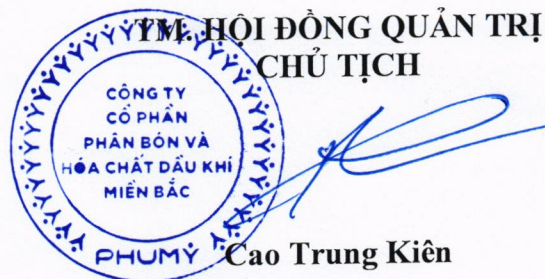 TM. HỘI ĐỒNG QUẢN TRỊ
CHỦ TỊCH
CÔNG TY
CỔ PHẦN
PHÂN BÓN VÀ
HÓA CHẤT DẦU KHÍ
MIỀN BẮC
PHUMỸ
Cao Trung Kiên